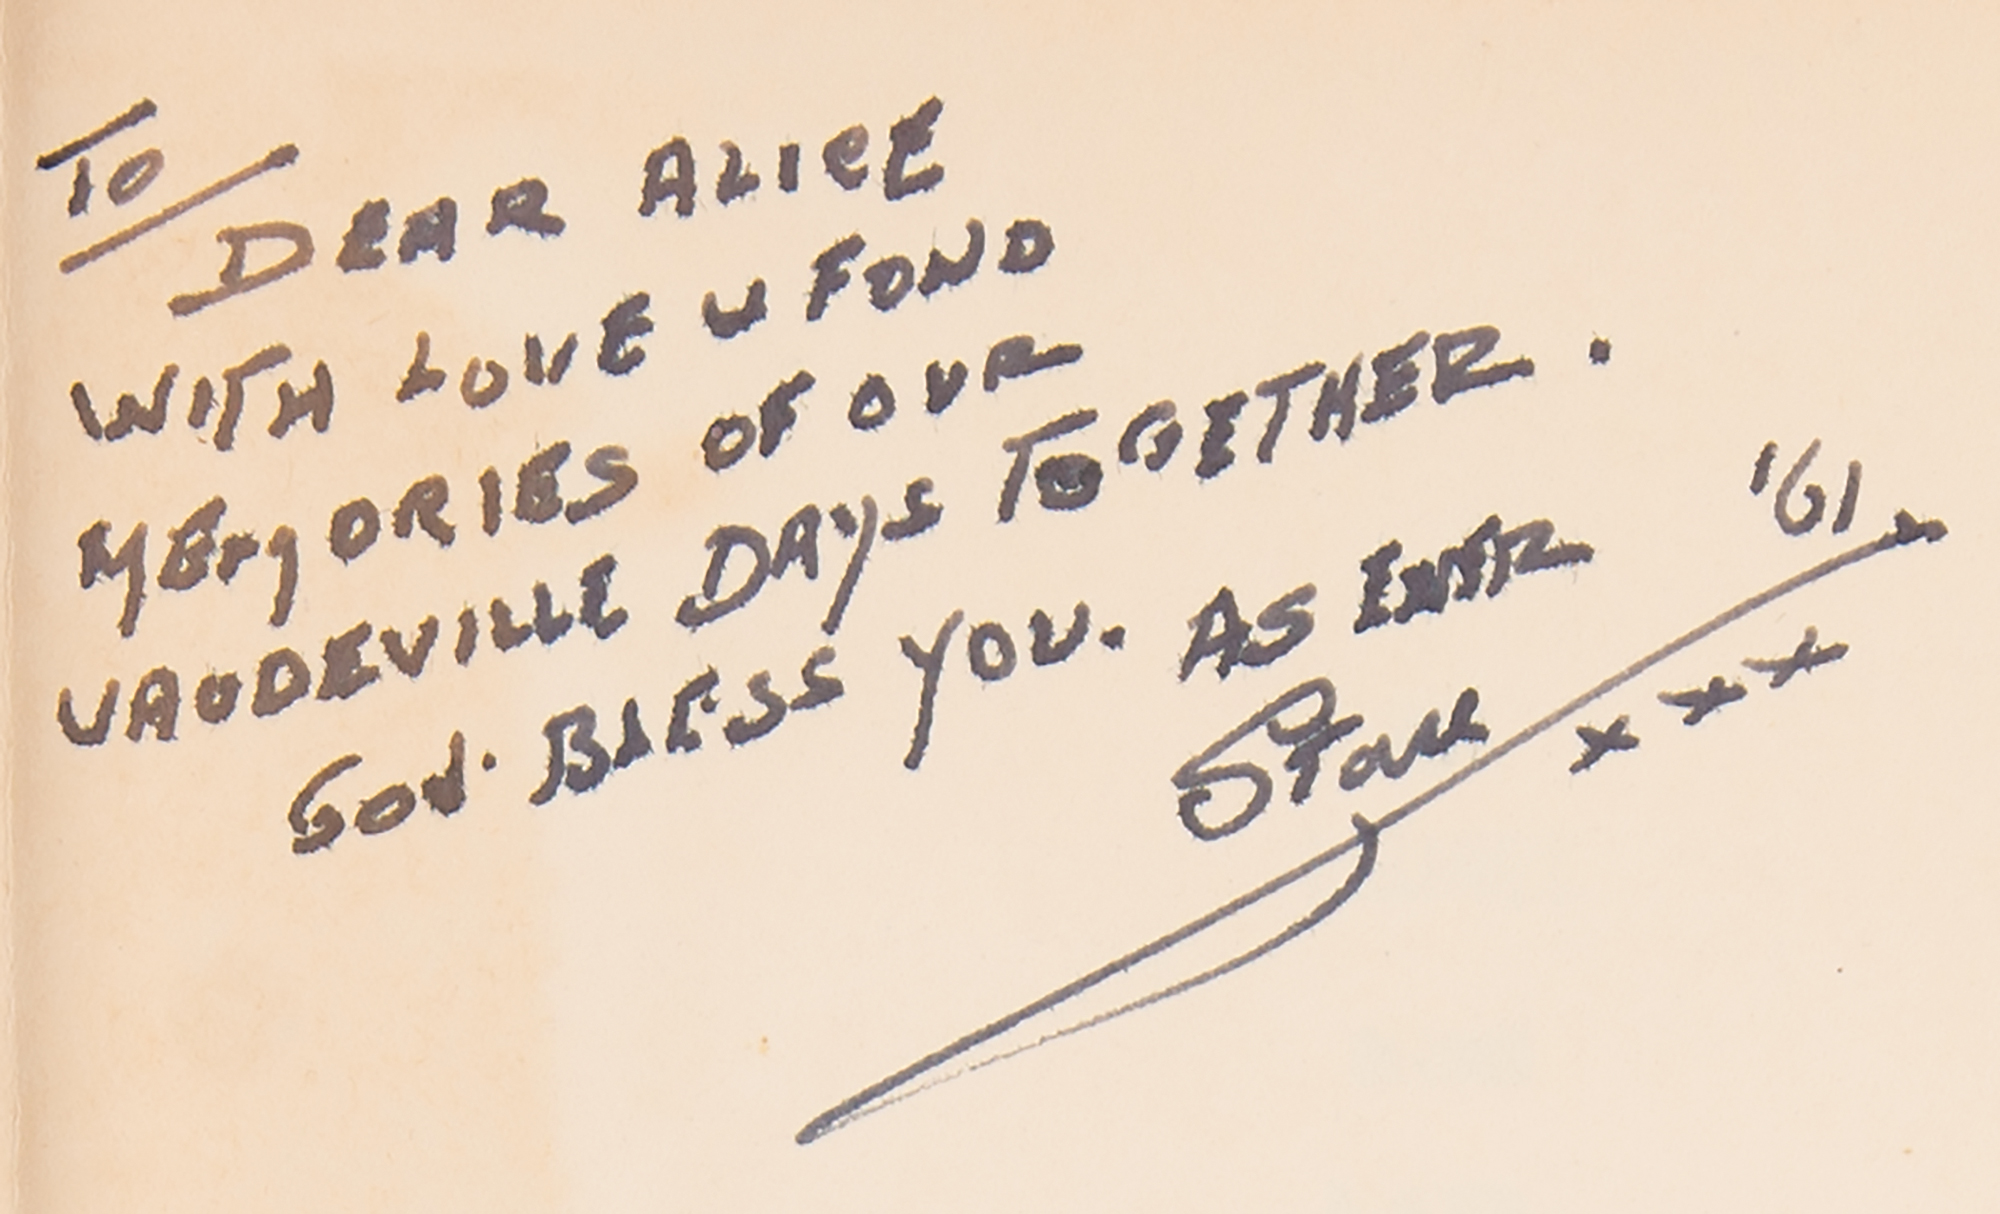 To
DEAR ALICE
WITH LOVE U FOND
MEMORIES OF OUR
VAUDEVILLE DAYS TOGETHER.
GOD. BLESS YOU. AS EVER '61
Stan xxx